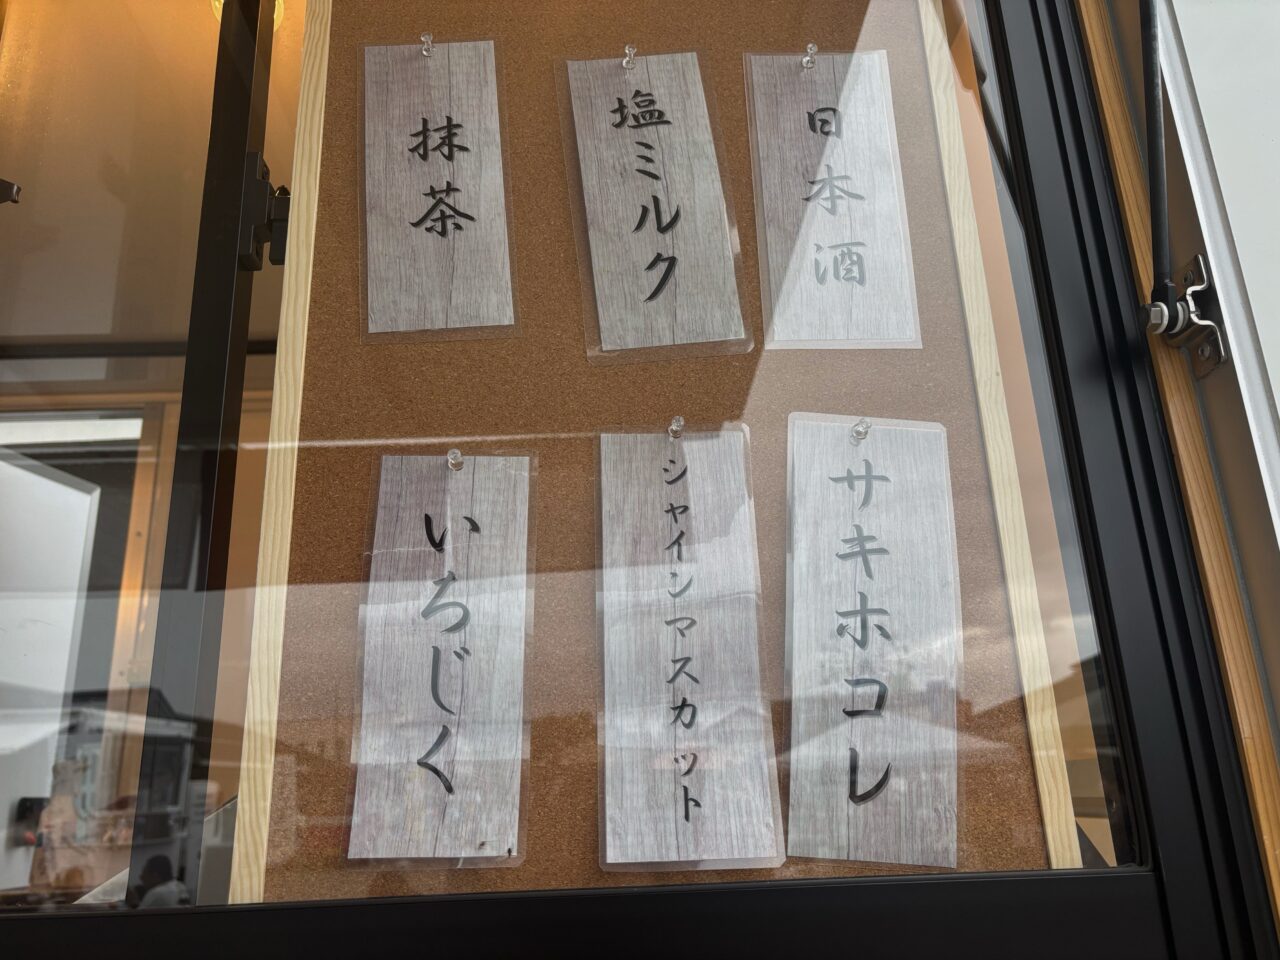 抹茶
塩ミルク
日本酒
いちじく
シャインマスカット
サキホコレ